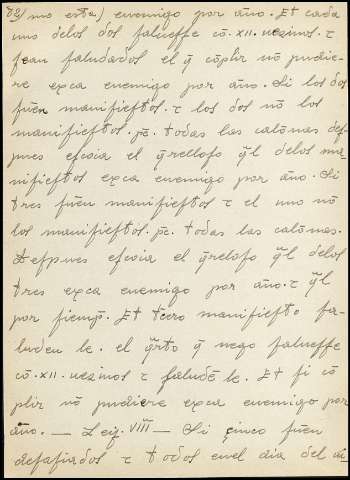 72) mo esta) enemigo por año. Et cada
uno delos dos salueſſe cõ .XII. uezinos. ⁊
ſean ſaludados el q̃ cõplir nõ pudie-
re exca enemigo por año. Si los dos
fuẽn manifieſtos. ⁊ los dos nõ los
manifieſtos. pc̃. todas las calõnas deſ-
pues eſcoia el q̃relloſo q̃l delos ma-
nifieſtos exca enemigo por año. Si
tres fuẽn manifieſtos ⁊ el uno nõ
los manifieſtos. pc̃. todas las calõnas.
Deſpues eſcoia el q̃relloſo q̃l delos
tres exca enemigo por año. ⁊ q̃l
por ſiemp̃. Et tcero manifieſto ſa-
luden le. el q̃rto q̃ nego ſalueſſe
cõ .XII. uezinos ⁊ ſaludẽ le. Et ſi cõ
plir nõ pudiere exca enemigo por
año. — Leiẏ. VIII — Si çinco fuẽn
deſafiados ⁊ todos enel dia del